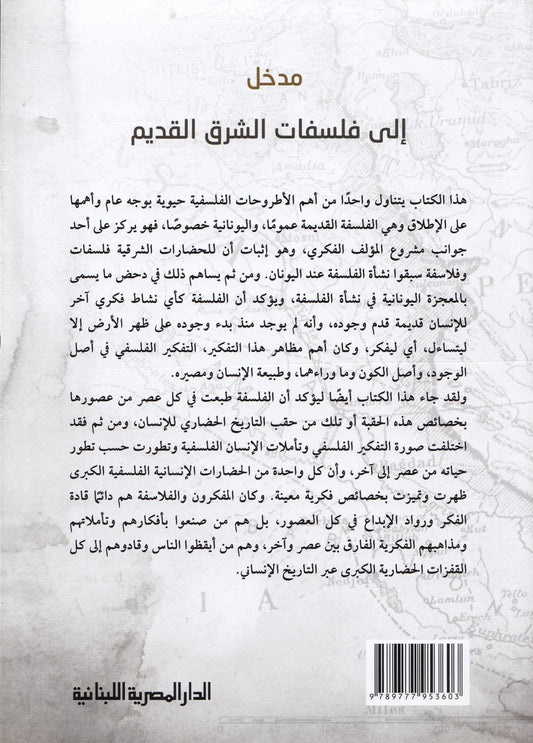 مدخل
إلى فلسفات الشرق القديم
هذا الكتاب يتناول واحدًا من أهم الأطروحات الفلسفية حيوية بوجه عام وأهمها
على الإطلاق وهي الفلسفة القديمة عمومًا، واليونانية خصوصًا، فهو يركز على أحد
جوانب مشروع المؤلف الفكري، وهو إثبات أن للحضارات الشرقية فلسفات
وفلاسفة سبقوا نشأة الفلسفة عند اليونان. ومن ثم يساهم ذلك في دحض ما يسمى
بالمعجزة اليونانية في نشأة الفلسفة، ويؤكد أن الفلسفة كأي نشاط فكري آخر
للإنسان قديمة قدم وجوده، وأنه لم يوجد منذ بدء وجوده على ظهر الأرض إلا
ليتساءل، أي ليفكر، وكان أهم مظاهر هذا التفكير، التفكير الفلسفي في أصل
الوجود، وأصل الكون وما وراءهما، وطبيعة الإنسان ومصيره.
ولقد جاء هذا الكتاب أيضًا ليؤكد أن الفلسفة طبعت في كل عصر من عصورها
بخصائص هذه الحقبة أو تلك من حقب التاريخ الحضاري للإنسان، ومن ثم فقد
اختلفت صورة التفكير الفلسفي وتأملات الإنسان الفلسفية وتطورت حسب تطور
حياته من عصر إلى آخر، وأن كل واحدة من الحضارات الإنسانية الفلسفية الكبرى
ظهرت وتميزت بخصائص فكرية معينة. وكان المفكرون والفلاسفة هم دائمًا قادة
الفكر ورواد الإبداع في كل العصور، بل هم من صنعوا بأفكارهم وتأملاتهم
ومذاهبهم الفكرية الفارق بين عصر وآخر، وهم من أيقظوا الناس وقادوهم إلى كل
القفزات الحضارية الكبرى عبر التاريخ الإنساني.
الدار المصرية اللبنانية
9 789777 953603
Miles